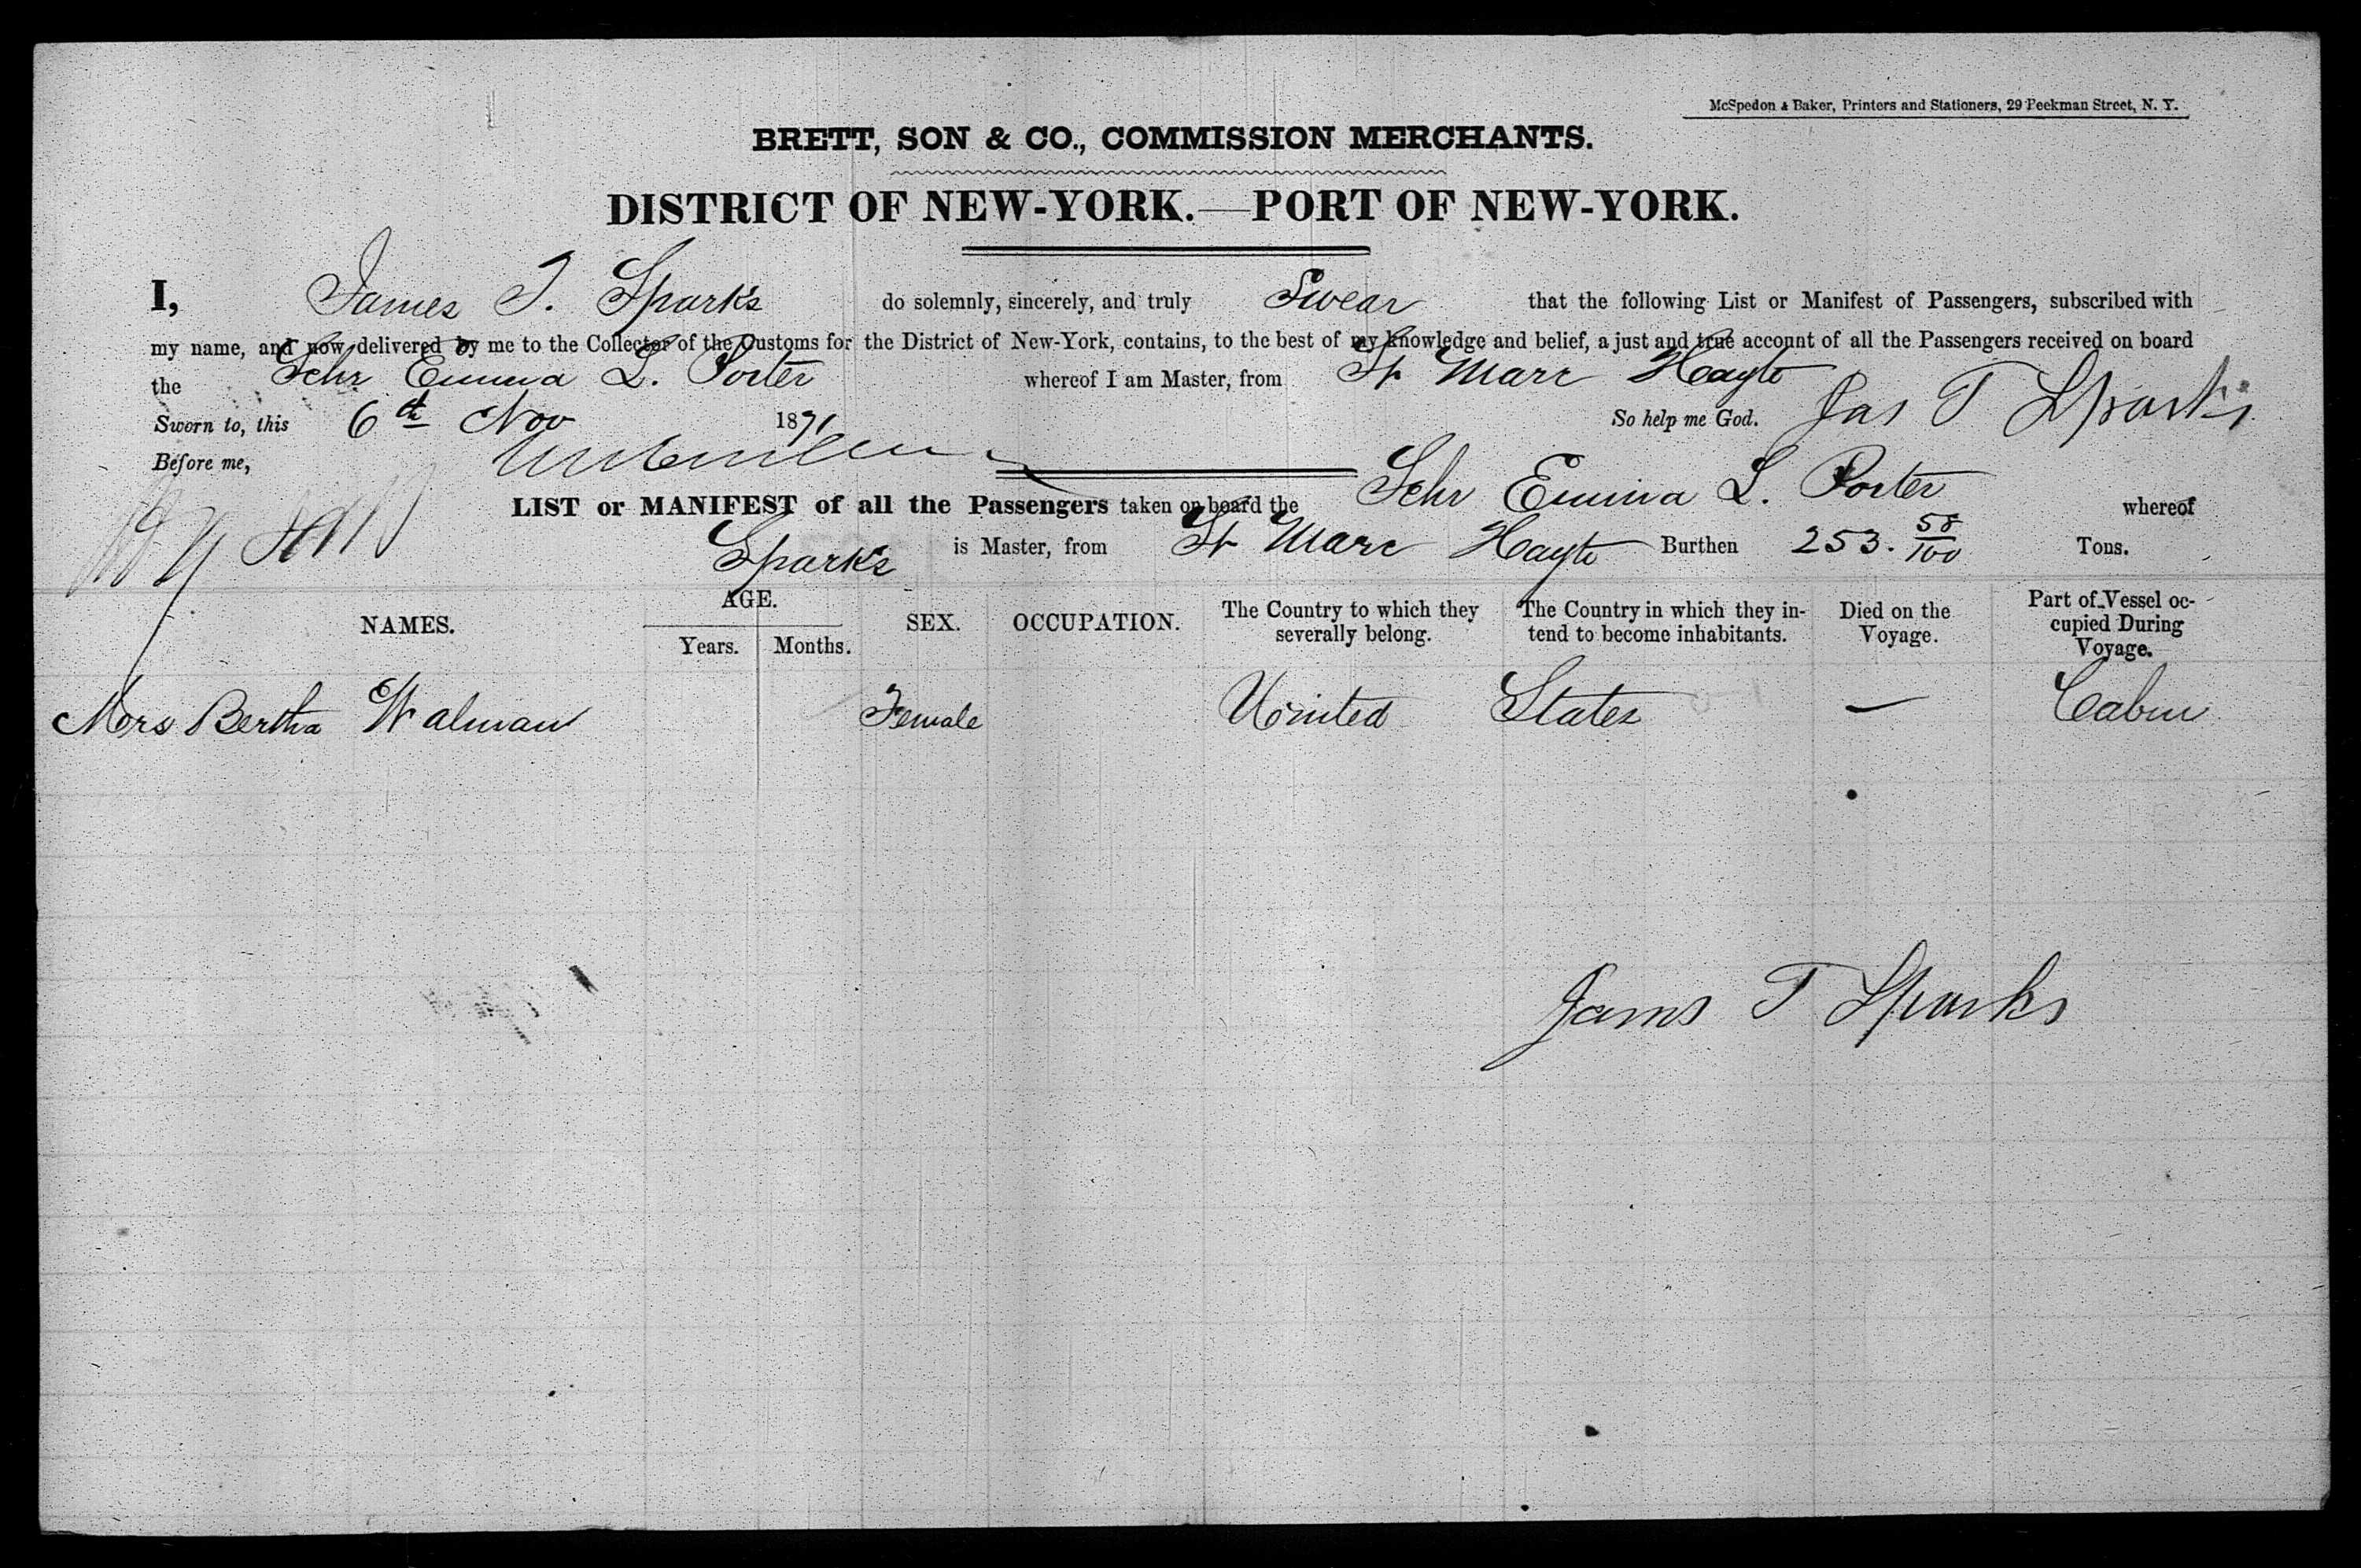 McSpedon & Baker, Printers and Stationers, 29 Beekman Street, N. Y.
BRETT, SON & CO., COMMISSION MERCHANTS.
DISTRICT OF NEW-YORK.—PORT OF NEW-YORK.
I, James T. Sparks do solemnly, sincerely, and truly Swear that the following List or Manifest of Passengers, subscribed with
my name, and now delivered by me to the Collector of the Customs for the District of New-York, contains, to the best of my knowledge and belief, a just and true account of all the Passengers received on board
the Schr Emma L. Porter whereof I am Master, from St Marc Hayte
Sworn to, this 6th Nov 1871 So help me God. Jas T Sparks
Before me,
LIST or MANIFEST of all the Passengers taken on board the Schr Emma L. Porter whereof
Sparks is Master, from St Marc Hayte Burthen 253. 58/100 Tons.
NAMES. AGE. Years. Months. SEX. OCCUPATION. The Country to which they severally belong. The Country in which they intend to become inhabitants. Died on the Voyage. Part of Vessel occupied During Voyage.
Mrs Bertha Walman Female United States — Cabin
James T Sparks